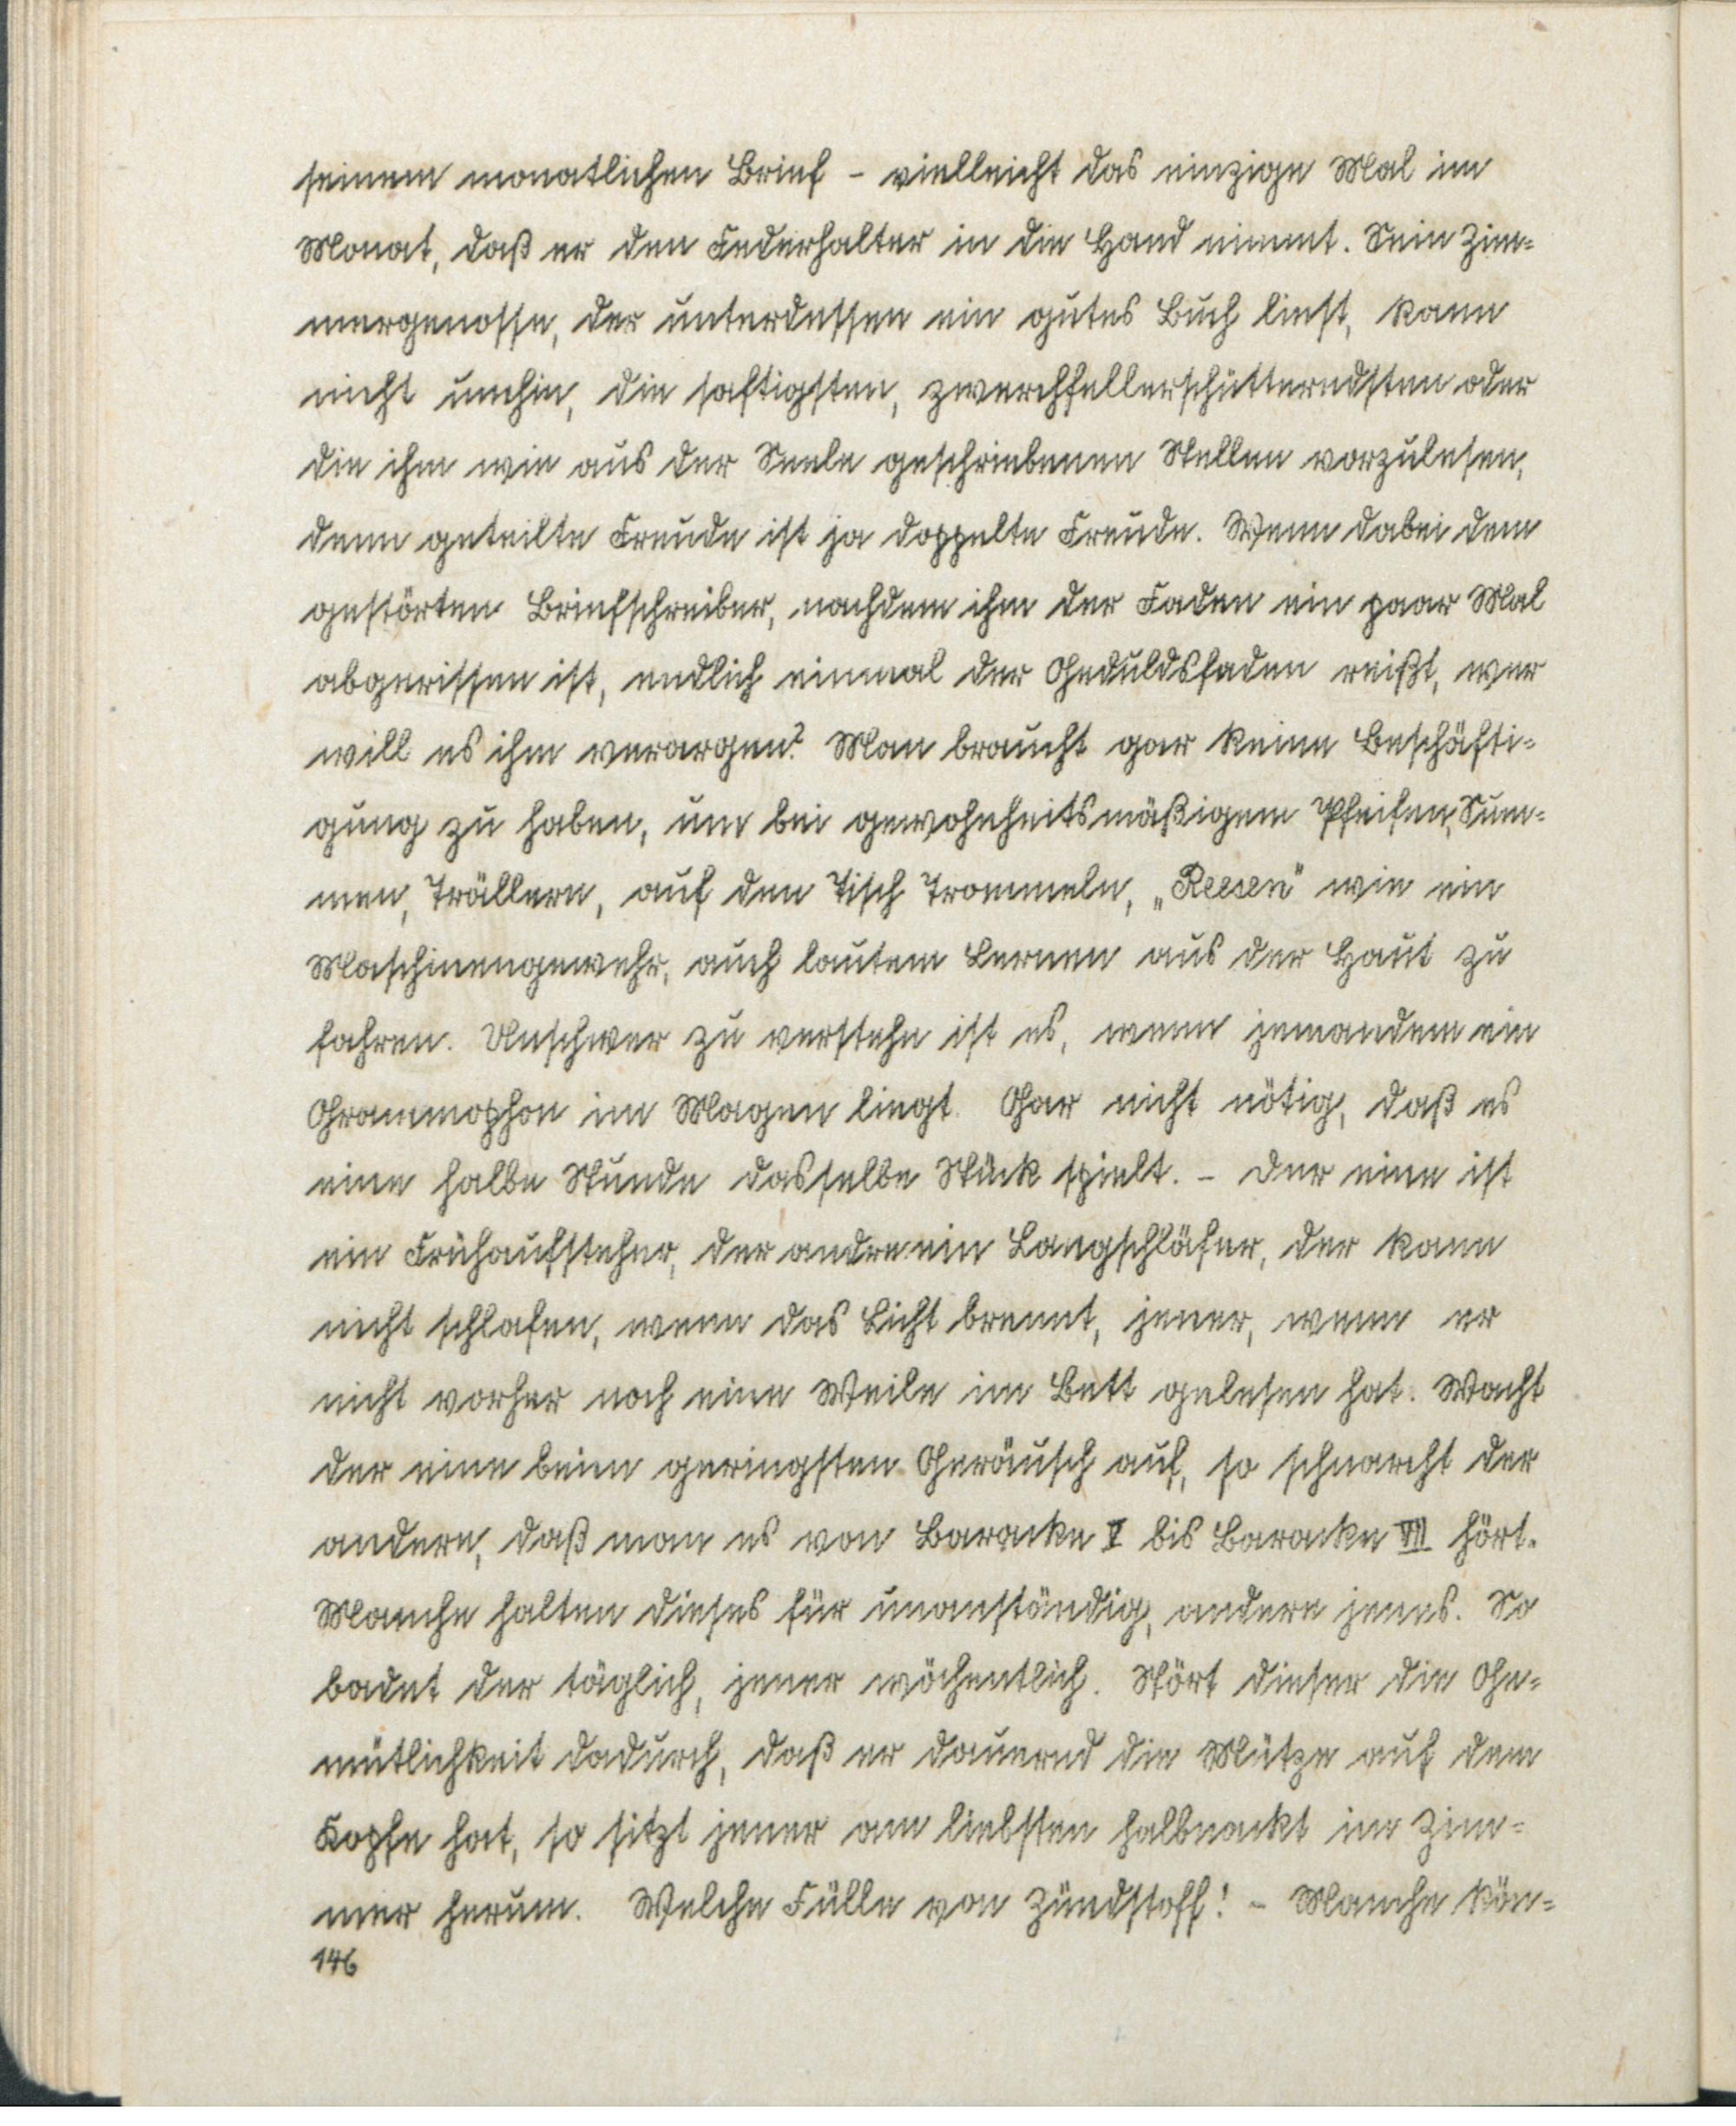 seinem monatlichen Brief - vielleicht das einzige Mal im
Monat, daß er den Federhalter in die Hand nimmt. Sein Zim-
mergenosse, der unterdessen ein gutes Buch liest, kann
nicht umhin, die saftigsten, zwerchfellerschütterndsten oder
die ihm wie aus der Seele geschriebenen Stellen vorzulesen,
denn geteilte Freude ist ja doppelte Freude. Wenn dabei dem
gestörten Briefschreiber, nachdem ihm der Faden ein paar Mal
abgerissen ist, endlich einmal der Geduldsfaden reißt, wer
will es ihm verargen? Man braucht gar keine Beschäfti-
gung zu haben, um bei gewohnheitsmäßigem Pfeifen, Sum-
men, Trällern, auf den Tisch Trommeln, „Reesen" wie ein
Maschinengewehr, auch lautem Lernen aus der Haut zu
fahren. Unschwer zu verstehn ist es, wenn jemandem ein
Grammophon im Magen liegt. Gar nicht nötig, daß es
eine halbe Stunde dasselbe Stück spielt. - Der eine ist
ein Frühaufsteher, der andre ein Langschläfer, der kann
nicht schlafen, wenn das Licht brennt, jener, wenn er
nicht vorher noch eine Weile im Bett gelesen hat. Wacht
der eine beim geringsten Geräusch auf, so schnarcht der
andere, daß man es von Baracke V bis Baracke VII hört.
Manche halten dieses für unanständig, andere jenes. So
badet der täglich, jener wöchentlich. Stört dieser die Ge-
mütlichkeit dadurch, daß er dauernd die Mütze auf dem
Kopfe hat, so sitzt jener am liebsten halbnackt im Zim-
mer herum. Welche Fülle von Zündstoff! - Manche kön-
146